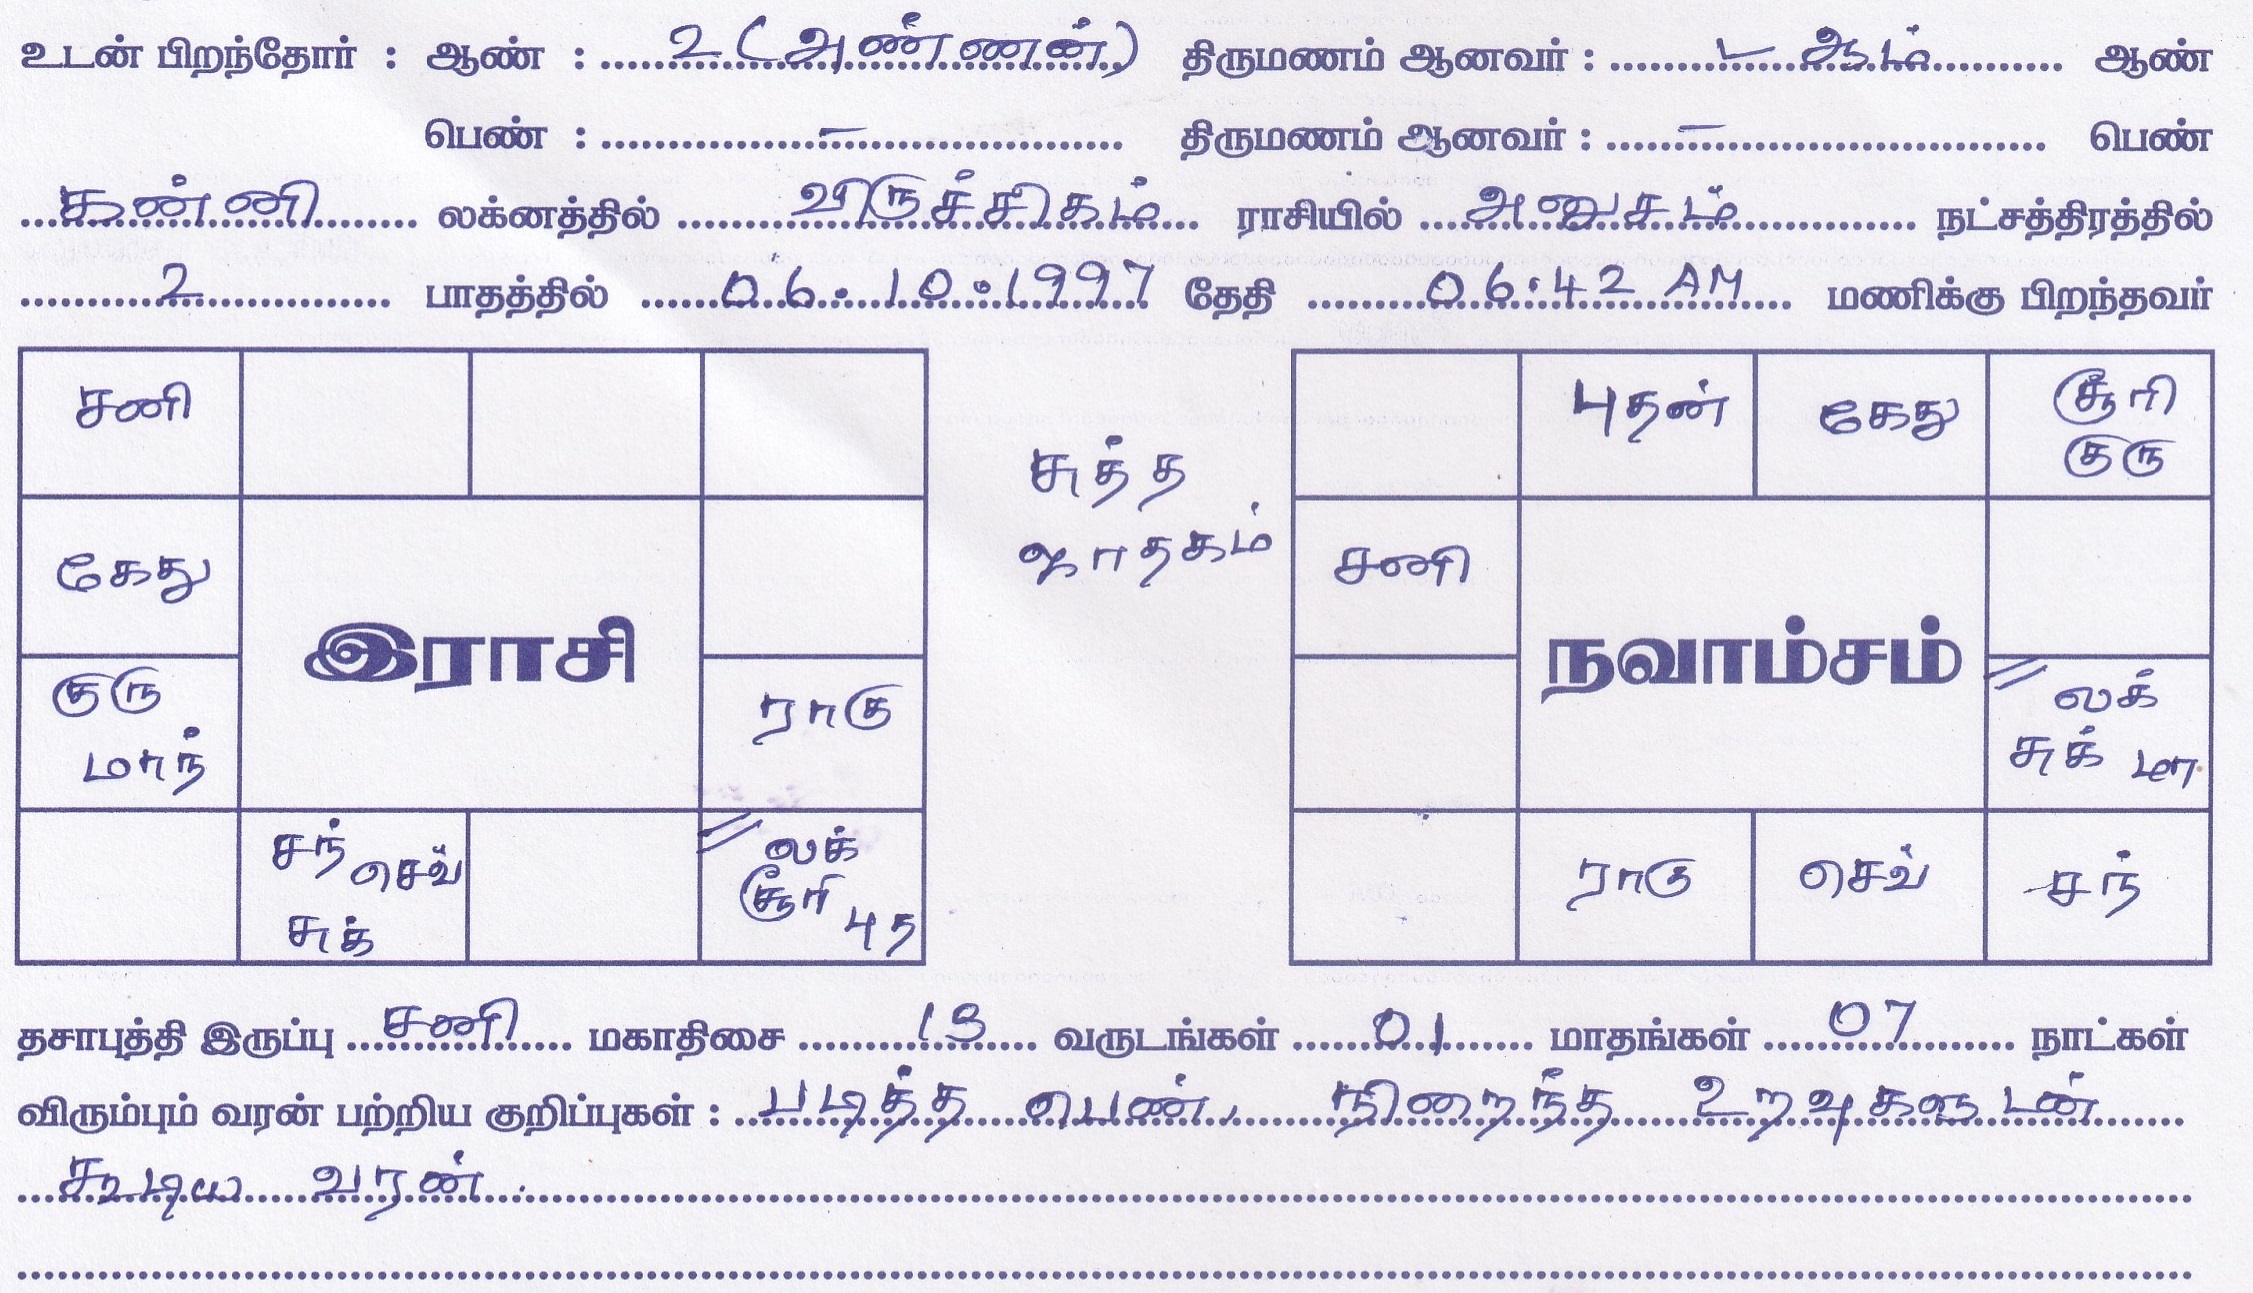 உடன் பிறந்தோர் : ஆண் : 2 (அண்ணன்) திருமணம் ஆனவர் : ஆண்
பெண் : – திருமணம் ஆனவர் : – பெண்
கன்னி லக்னத்தில் விருச்சிகம் ராசியில் அனுசம் நட்சத்திரத்தில்
2 பாதத்தில் 06.10.1997 தேதி 06.42 AM மணிக்கு பிறந்தவர்
சனி
கேது
குரு
மாந்
இராசி
ராகு
சந் செவ்
சுக்
லக்
சூரி புத
சுத்த
ஜாதகம்
புதன் கேது சூரி
குரு
சனி
நவாம்சம்
லக்
சுக் மா
ராகு செவ் சந்
தசாபுத்தி இருப்பு சனி மகாதிசை 13 வருடங்கள் 01 மாதங்கள் 07 நாட்கள்
விரும்பும் வரன் பற்றிய குறிப்புகள் : படித்த பெண், நிறைந்த உறவுகளுடன்
கூடிய வரன்.